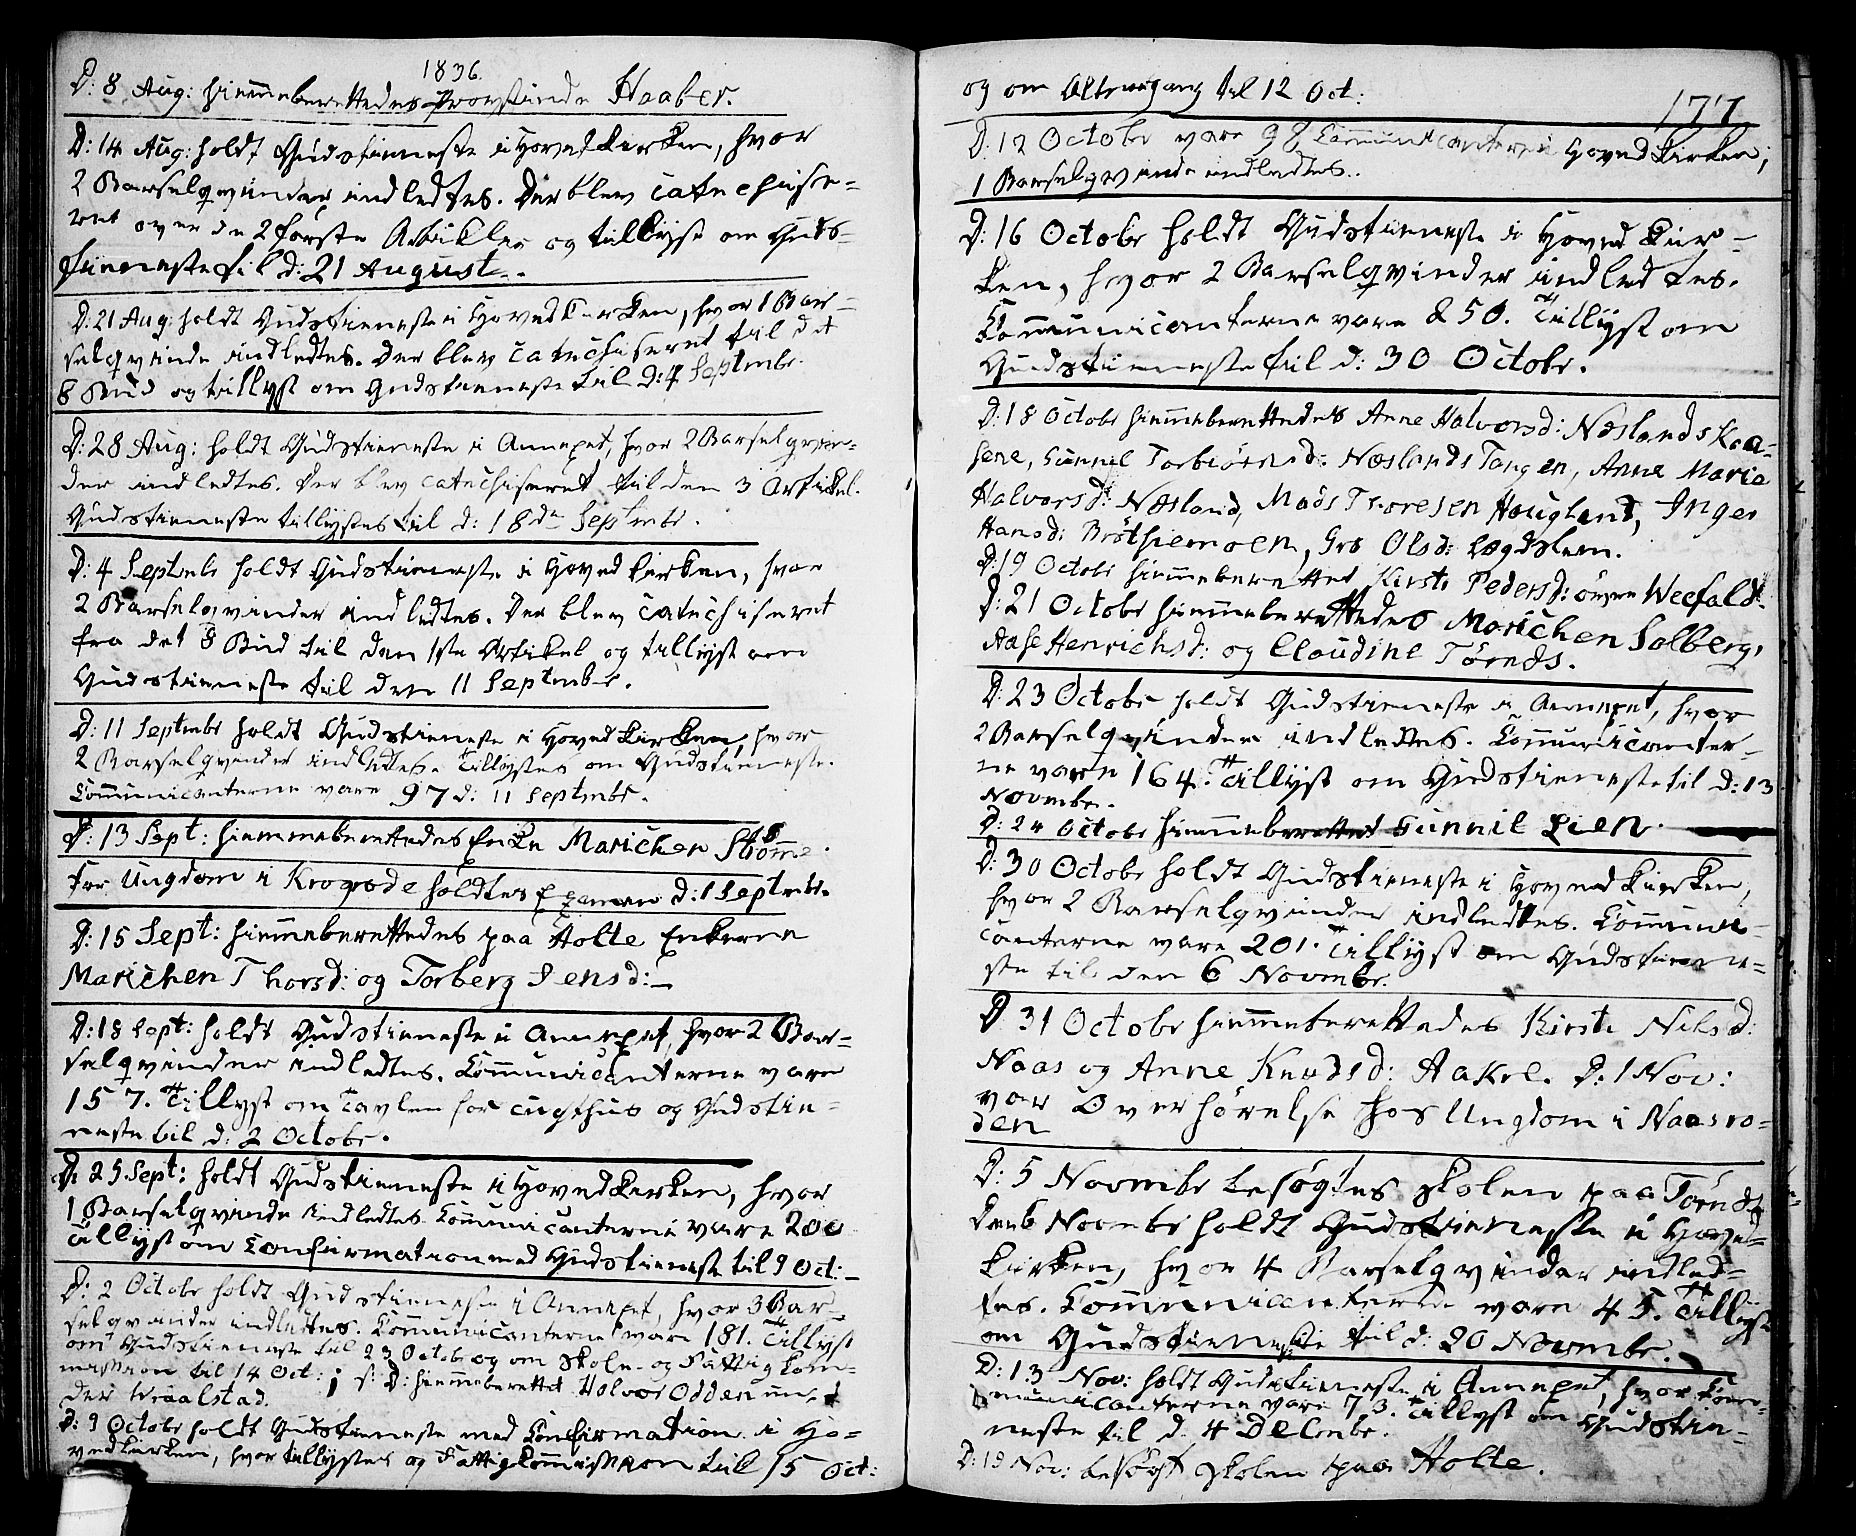 1836.
D: 8 Aug: hiemmeberettedes Provstinde Haaber.
D: 14 Aug: holdt Gudstieneste i Hovedkirken, hvor
2 Barselqvinder indledtes. Der blev catechise-
ret over de 2 første Artikler og tillyst om Guds-
tieneste til d: 21 August.
D: 21 Aug: holdt Gudstieneste i Hovedkirken, hvor 1 Bar-
selqvinde indledtes. Der blev catechiseret til det
8 Bud og tillyst om Gudstieneste til D: 4 Septembr.
D: 28 Aug: holdt Gudstieneste i Annexet, hvor 2 Barselqvin-
der indledtes. Der blev catechiseret til den 3 Artikel.
Gudstieneste tillystes til d: 18de Septembr.
D: 4 Septembr holdt Gudstieneste i Hovedkirken, hvor
2 Barselqvinder indledtes. Der blev catechiseret
fra det 8 Bud til den 1ste Artikel og tillyst om
Gudstieneste til den 11 Septembr.
D: 11 Septembr holdt Gudstieneste i Hovedkirken, hvor
2 Barselqvinder indledtes. Tillystes om Gudstieneste.
Communicanterne vare 97 d: 11 Septembr.
D: 13 Sept: hiemmeberettedes Enke Marichen Strømme.
For Ungdom i Krogrode holdtes Examen d: 1 Septembr.
D: 15 Sept: hiemmeberettedes paa Holte Enkerne
Marichen Thorsd: og Torberg Jensd:
D: 18 Sept: holdt Gudstieneste i Annexet, hvor 2 Bar-
selqvinder indledtes. Communicanterne vare
157. Tillyst om Tavlen for Tugthus og Gudstie-
neste til d: 2 Octobr.
D: 25 Sept: holdt Gudstieneste i Hovedkirken, hvor
1 Barselqvinde indledtes. Communicanterne vare 200
Tillyst om Confirmation med Gudstieneste til 9 Oct:
D: 2 Octobr holdt Gudstieneste i Annexet, hvor 3 Bar-
selqvinder indledtes. Communicanterne vare 181. Tillyst
om Gudstieneste til 23 Octobr og om Skole- og Fattigkom-
mission til 14 Oct: s: D: hiemmeberettet Halvor Odden un-
der Wraalstad.
D: 9 Octobr holdt Gudstieneste med Confirmation i Ho-
vedkirken, hvor tillystes og Fattigkommission til 15 Oct:
og om Altergang til 12 Oct:
177
D: 12 Octobr vare 98 Communicanter i Hovedkirken;
1 Barselqvinde indledtes.
D: 16 Octobr holdt Gudstieneste i Hovedkir-
ken, hvor 2 Barselqvinder indledtes.
Communicanterne vare 250. Tillyst om
Gudstieneste til d: 30 Octobr.
D: 18 Octobr hiemmeberettedes Anne Halvorsd: Næslands Kaa-
sene, Gunnil Torbiørnsd: Næslands Tangen, Anne Maria
Halvorsd: Næsland, Mads Thoresen Haugland, Inger
Hansd: Brøthiemoen, Gro Olsd: Lægdslem.
D: 19 Octobr hiemmeberettet Kirsti Pedersd: øvre Weefald.
D: 21 Octobr hiemmeberettedes Marichen Solberg,
Aase Henrichsd: og Claudine Tørnds.
D: 23 Octobr holdt Gudstieneste i Annexet, hvor
2 Barselqvinder indledtes. Communicanter-
ne vare 164. Tillyst om Gudstieneste til d: 13
Novembr.
D: 24 Octobr hiemmeberettet Gunnil Lien.
D: 30 Octobr holdt Gudstieneste i Hovedkirken,
hvor 2 Barselqvinder indledtes. Communi-
canterne vare 201. Tillyst om Gudstiene-
ste til den 6 Novembr.
D 31 Octobr hiemmeberettedes Kirsti Nilsd:
Naas og Anne Knudsd: Aakre. D: 1 Nov:
var Overhørelse hos Ungdom i Naasro-
den
D: 5 Novembr besøgtes Skolen paa Tørnds
Den 6 Novembr holdt Gudstieneste i Hoved-
kirken, hvor 4 Barselqvinder indled-
tes. Communicanterne vare 45. Tillyst
om Gudstieneste til d: 20 Novembr.
D: 13 Nov: holdt Gudstieneste i Annexet, hvor Com-
municanterne vare 73. Tillyst om Gudstie-
neste til d. 4 Decembr.
D: 19 Nov: besøgt Skolen paa Holte.